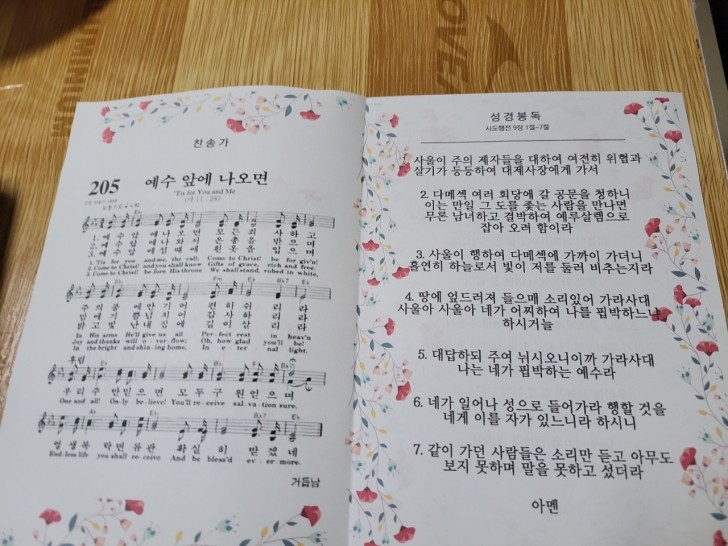 찬송가
205
예수 앞에 나오면
'Tis for You and Me
(마 11 : 28)
1. 예수 앞에 나오면 모든 죄 사하고
2. 예수 앞에 나와서 은총을 받으며
3. 예수 앞에 설 때에 흰옷을 입으며
1. 'Tis for you and me, the call: Come to Christ! be for-giv'n!
2. Come to Christ! and you shall know Gifts of grace, rich and free.
3. Come to Christ! be-fore His throne We shall stand, robed in white,
주의 품에 안기어 편히 쉬리라
맘에 기쁨 넘치어 감사하리라
밝고 빛난 내 집에 길이 살리라
In His arms He'll give us all Per-fect rest in heav'n
Joy and thanks will o-ver-flow; Oh, how glad you'll be!
In the bright and shin-ing home, In e-ter-nal light.
후렴
우리 주만 믿으면 모두 구원 얻으며
One and all! On-ly be-lieve! You'll re-ceive sal-va-tion sure.
영생복락 면류관 확실히 받겠네
End-less life you shall re-ceive And be bless'd ev-er-more.
거듭남
성경봉독
사도행전 9장 1절~7절
사울이 주의 제자들을 대하여 여전히 위협과
살기가 등등하여 대제사장에게 가서
2. 다메섹 여러 회당에 갈 공문을 청하니
이는 만일 그 도를 좇는 사람을 만나면
무론 남녀하고 결박하여 예루살렘으로
잡아 오려 함이라
3. 사울이 행하여 다메섹에 가까이 가더니
홀연히 하늘로서 빛이 저를 둘러 비추는지라
4. 땅에 엎드러져 들으매 소리있어 가라사대
사울아 사울아 네가 어찌하여 나를 핍박하느냐
하시거늘
5. 대답하되 주여 뉘시오니이까 가라사대
나는 네가 핍박하는 예수라
6. 네가 일어나 성으로 들어가라 행할 것을
네게 이를 자가 있느니라 하시니
7. 같이 가던 사람들은 소리만 듣고 아무도
보지 못하며 말을 못하고 섰더라
아멘